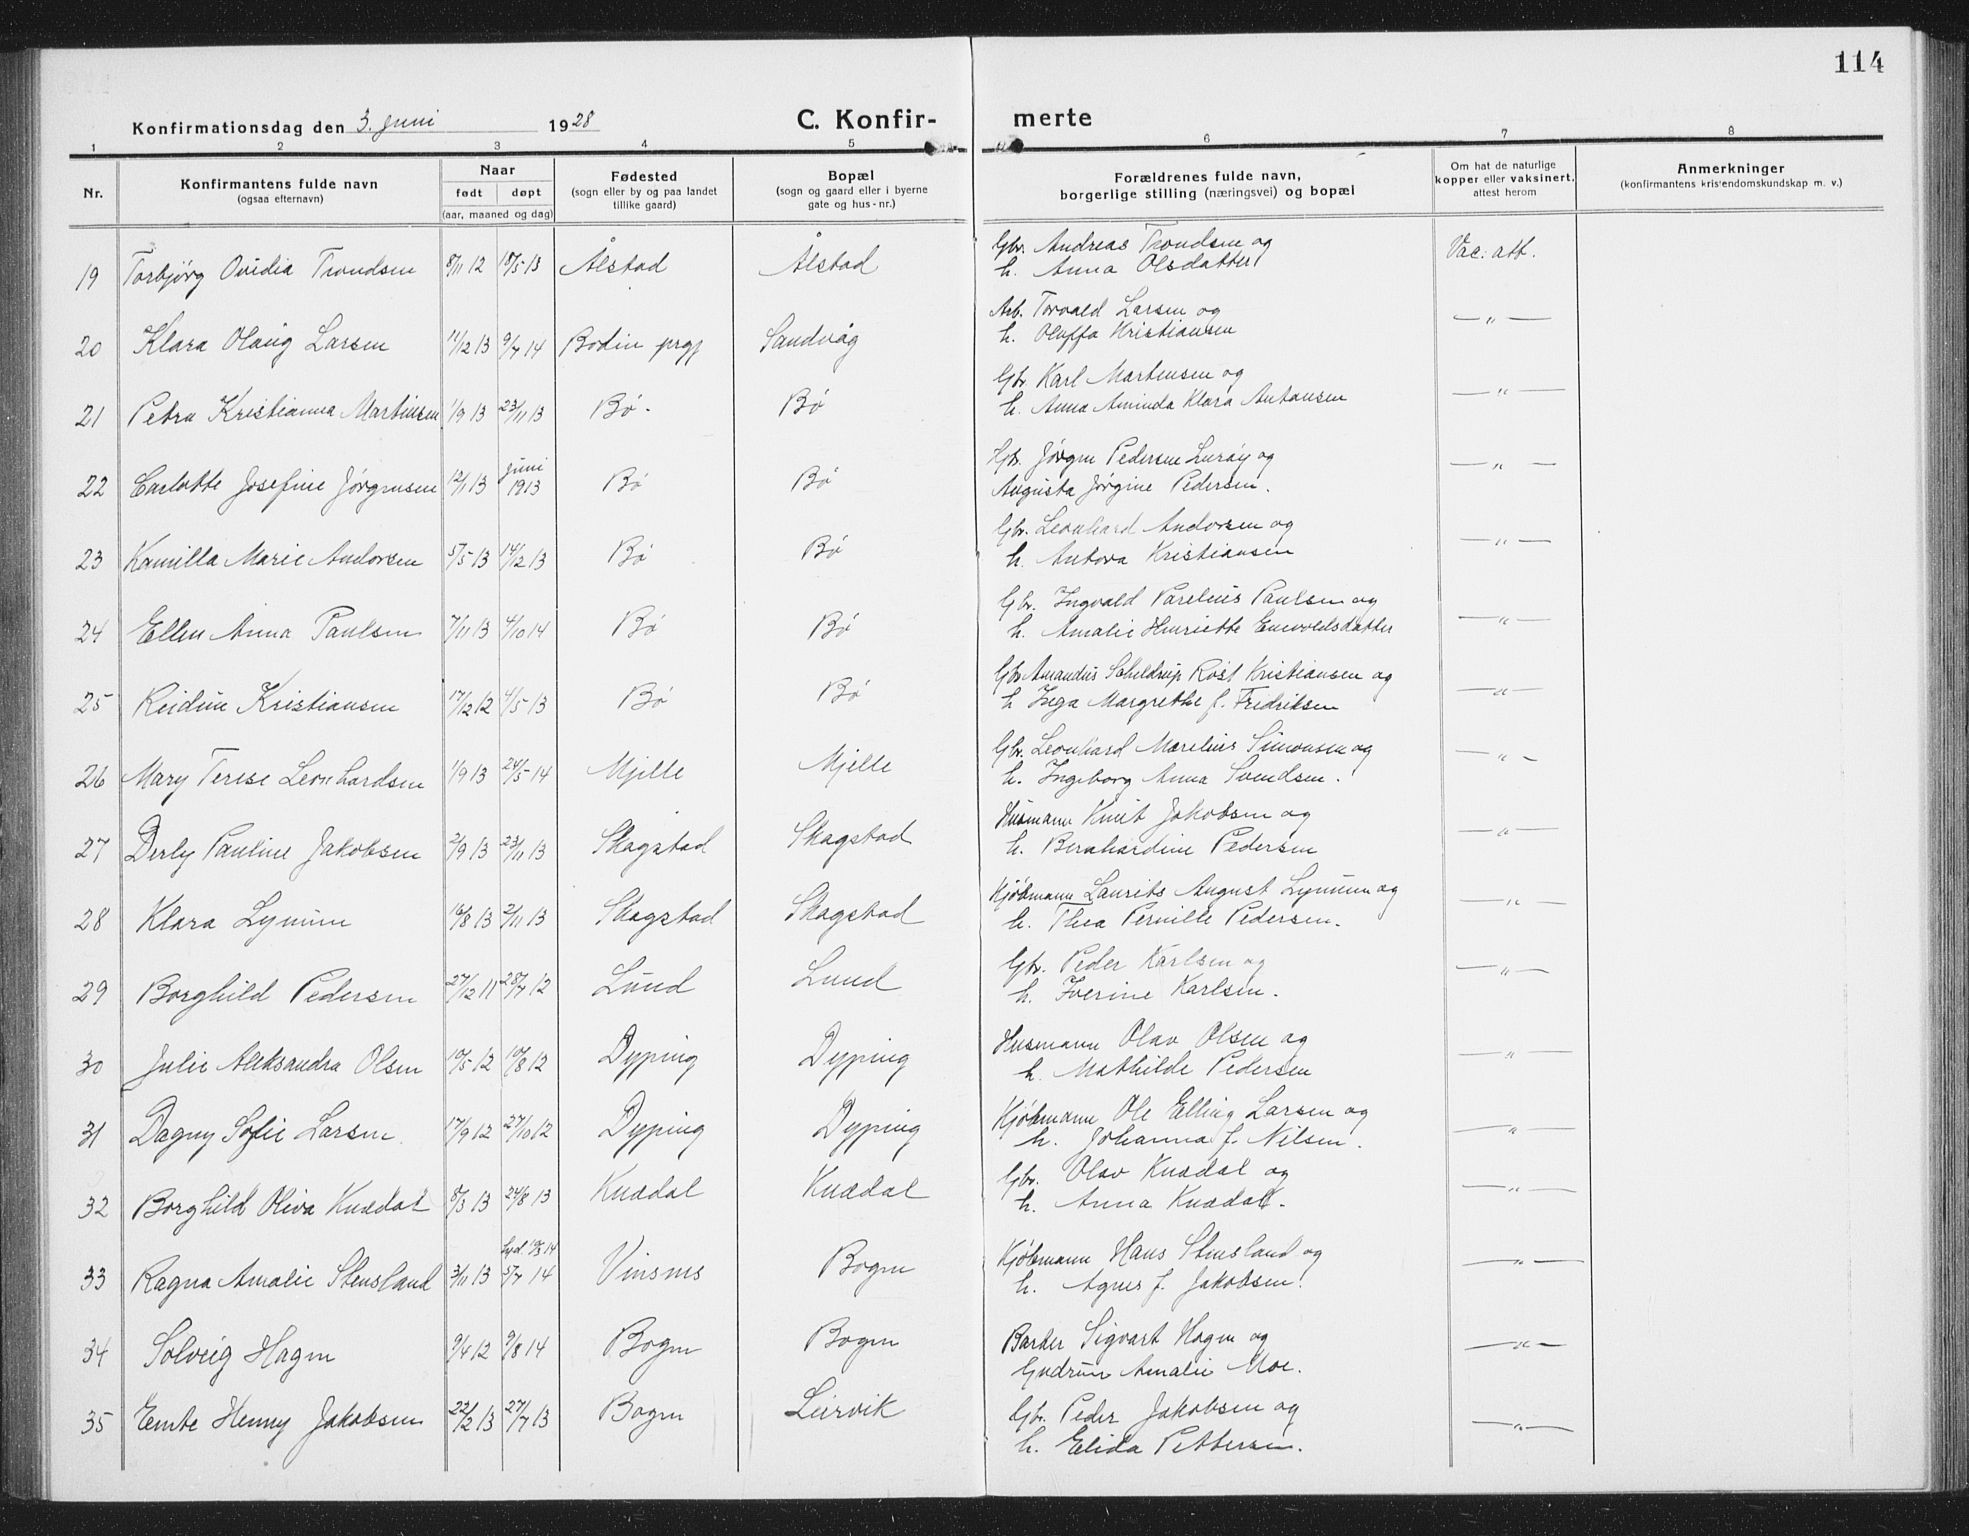 114
Konfirmationsdag den 3. juni 1928 C. Konfir- merte
1 2 3 4 5 6 7 8
Nr. Konfirmantens fulde navn (ogsaa efternavn) Naar født døpt (aar, maaned og dag) Fødested (sogn eller by og paa landet tillike gaard) Bopæl (sogn og gaard eller i byerne gate og hus-nr.) Forældrenes fulde navn, borgerlige stilling (næringsvei) og bopæl Om hat de naturlige kopper eller vaksinert, attest herom Anmerkninger (konfirmantens kristendomskundskap m. v.)
19 Torbjørg Ovidia Trondsen 8/11 12 18/5 13 Ålstad Ålstad Gbr. Andreas Trondsen og Vac: att.
h. Anna Olsdatter
20 Klara Olaug Larsen 11/12 13 9/7 14 Bodin prgj Sandvåg Arb. Torvald Larsen og — " —
h. Oluffa Kristiansen
21 Petra Kristianna Martinsen 1/9 13 23/11 13 Bø. Bø Gbr. Karl Martensen og — " —
h. Anna Aminda Klara Antonsen
22 Carlotte Josefine Jørgensen 12/11 13 juni 1913 Bø Bø Gbr. Jørgen Pedersen Lurøy og — " —
Augusta Jørgine Pedersen.
23 Kamilla Marie Andorsen 5/5 13 14/12 13 Bø Bø Gbr. Leonhard Andorsen og — " —
h. Antora Kristiansen
24 Ellen Anna Paulsen 7/11 13 4/10 14 Bø Bø Gbr. Ingvald Parelius Paulsen og — " —
h. Amalie Henriette Enevoldsdatter
25 Reidun Kristiansen 17/12 12 4/5 13 Bø Bø Gbr Amandus Scheldrup Røst Kristiansen og — " —
h Inga Margrethe f. Fredriksen
26 Mary Terese Leonhardsen 1/9 13 24/5 14 Mjelle Mjelle Gbr. Leonhard Marelius Simonsen og — " —
h. Ingeborg Anna Svendsen.
27 Derly Pauline Jakobsen 2/9 13 23/11 13 Skagstad Skagstad Husmann Knut Jakobsen og — " —
h. Bernhardine Pedersen
28 Klara Lynum 16/8 13 2/11 13 Skagstad Skagstad Kjøbmann Laurits August Lynum og — " —
h. Thea Pernille Pedersen.
29 Borghild Pedersen 27/12 11 28/7 12 Lund Lund Gbr. Peder Karlsen og — " —
h. Iverine Karlsen.
30 Julie Aleksandra Olsen 10/5 12 10/8 12 Dyping Dyping Husmann Olav Olsen og — " —
h. Mathilde Pedersen
31 Dagny Sofie Larsen 17/9 12 27/10 12 Dyping Dyping Kjøbmann Ole Elling Larsen og — " —
h. Johanna f. Nilsen.
32 Borghild Oliva Knædal 8/3 13 24/8 13 Knædal Knædal Gbr. Olav Knædal og — " —
h. Anna Knædal.
33 Ragna Amalie Stensland 3/11 13 5/7 14 Vinsnes Bogen Kjøbmann Hans Stensland og — " —
h. Agnes f. Jakobsen.
34 Solveig Hagen 9/4 12 9/8 14 Bogen Bogen Barber Sigvart Hagen og — " —
Gudrun Amalie Moe.
35 Emte Henny Jakobsen 22/2 13 27/7 13 Bogen Leirvik Gbr. Peder Jakobsen og — " —
h. Elida Pettersen.